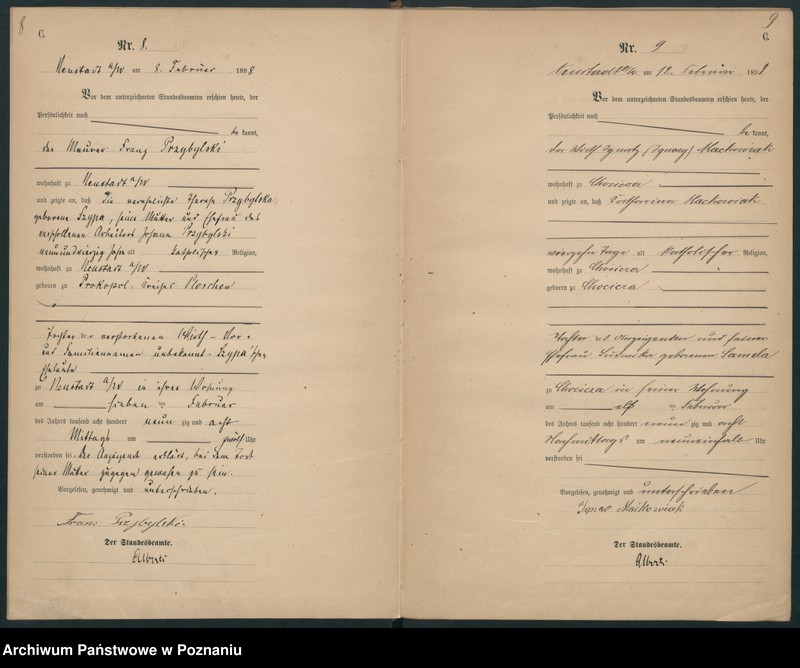 8
C.
Nr. 8.
Neustadt a/W am 8. Februar 1898
Vor dem unterzeichneten Standesbeamten erschien heute, der
Persönlichkeit nach
be kannt,
der Maurer Franz Przybylski
wohnhaft zu Neustadt a/W
und zeigte an, daß die verehelichte Therese Przybylska,
geborene Szypa, seine Mutter und Ehefrau des
verstorbenen Arbeiters Johann Przybylski
neunundvierzig Jahre alt katholischer Religion,
wohnhaft zu Neustadt a/W
geboren zu Prokopol, Kreises Pleschen
Tochter der verstorbenen Wirth - Vor-
und Familiennamen unbekannt - Szypa'schen
Eheleute
zu Neustadt a/W in ihrer Wohnung
am sieben ten Februar
des Jahres tausend acht hundert neun zig und acht
Mittags um zwölf Uhr
verstorben sei. Der Anzeigende erklärt, bei dem Tode
seiner Mutter zugegen gewesen zu sein.
Vorgelesen, genehmigt und unterschrieben.
Franz Przybylski.
Der Standesbeamte.
Alberti
9
C.
Nr. 9
Neustadt a/W am 12. Februar 1898
Vor dem unterzeichneten Standesbeamten erschien heute, der
Persönlichkeit nach
be kannt,
der Wirth Ignatz (Ignacy) Mackowiak
wohnhaft zu Chocicza
und zeigte an, daß Katharina Mackowiak
vierzehn Tage alt katholischer Religion,
wohnhaft zu Chocicza
geboren zu Chocicza
Tochter des Anzeigenden und seiner
Ehefrau Ludwika geborenen Samela
zu Chocicza in seiner Wohnung
am elf ten Februar
des Jahres tausend acht hundert neun zig und acht
Nachmittags um neuneinhalb Uhr
verstorben sei
Vorgelesen, genehmigt und unterschrieben
Ignac Maćkowiak
Der Standesbeamte.
Alberti
Archiwum Państwowe w Poznaniu